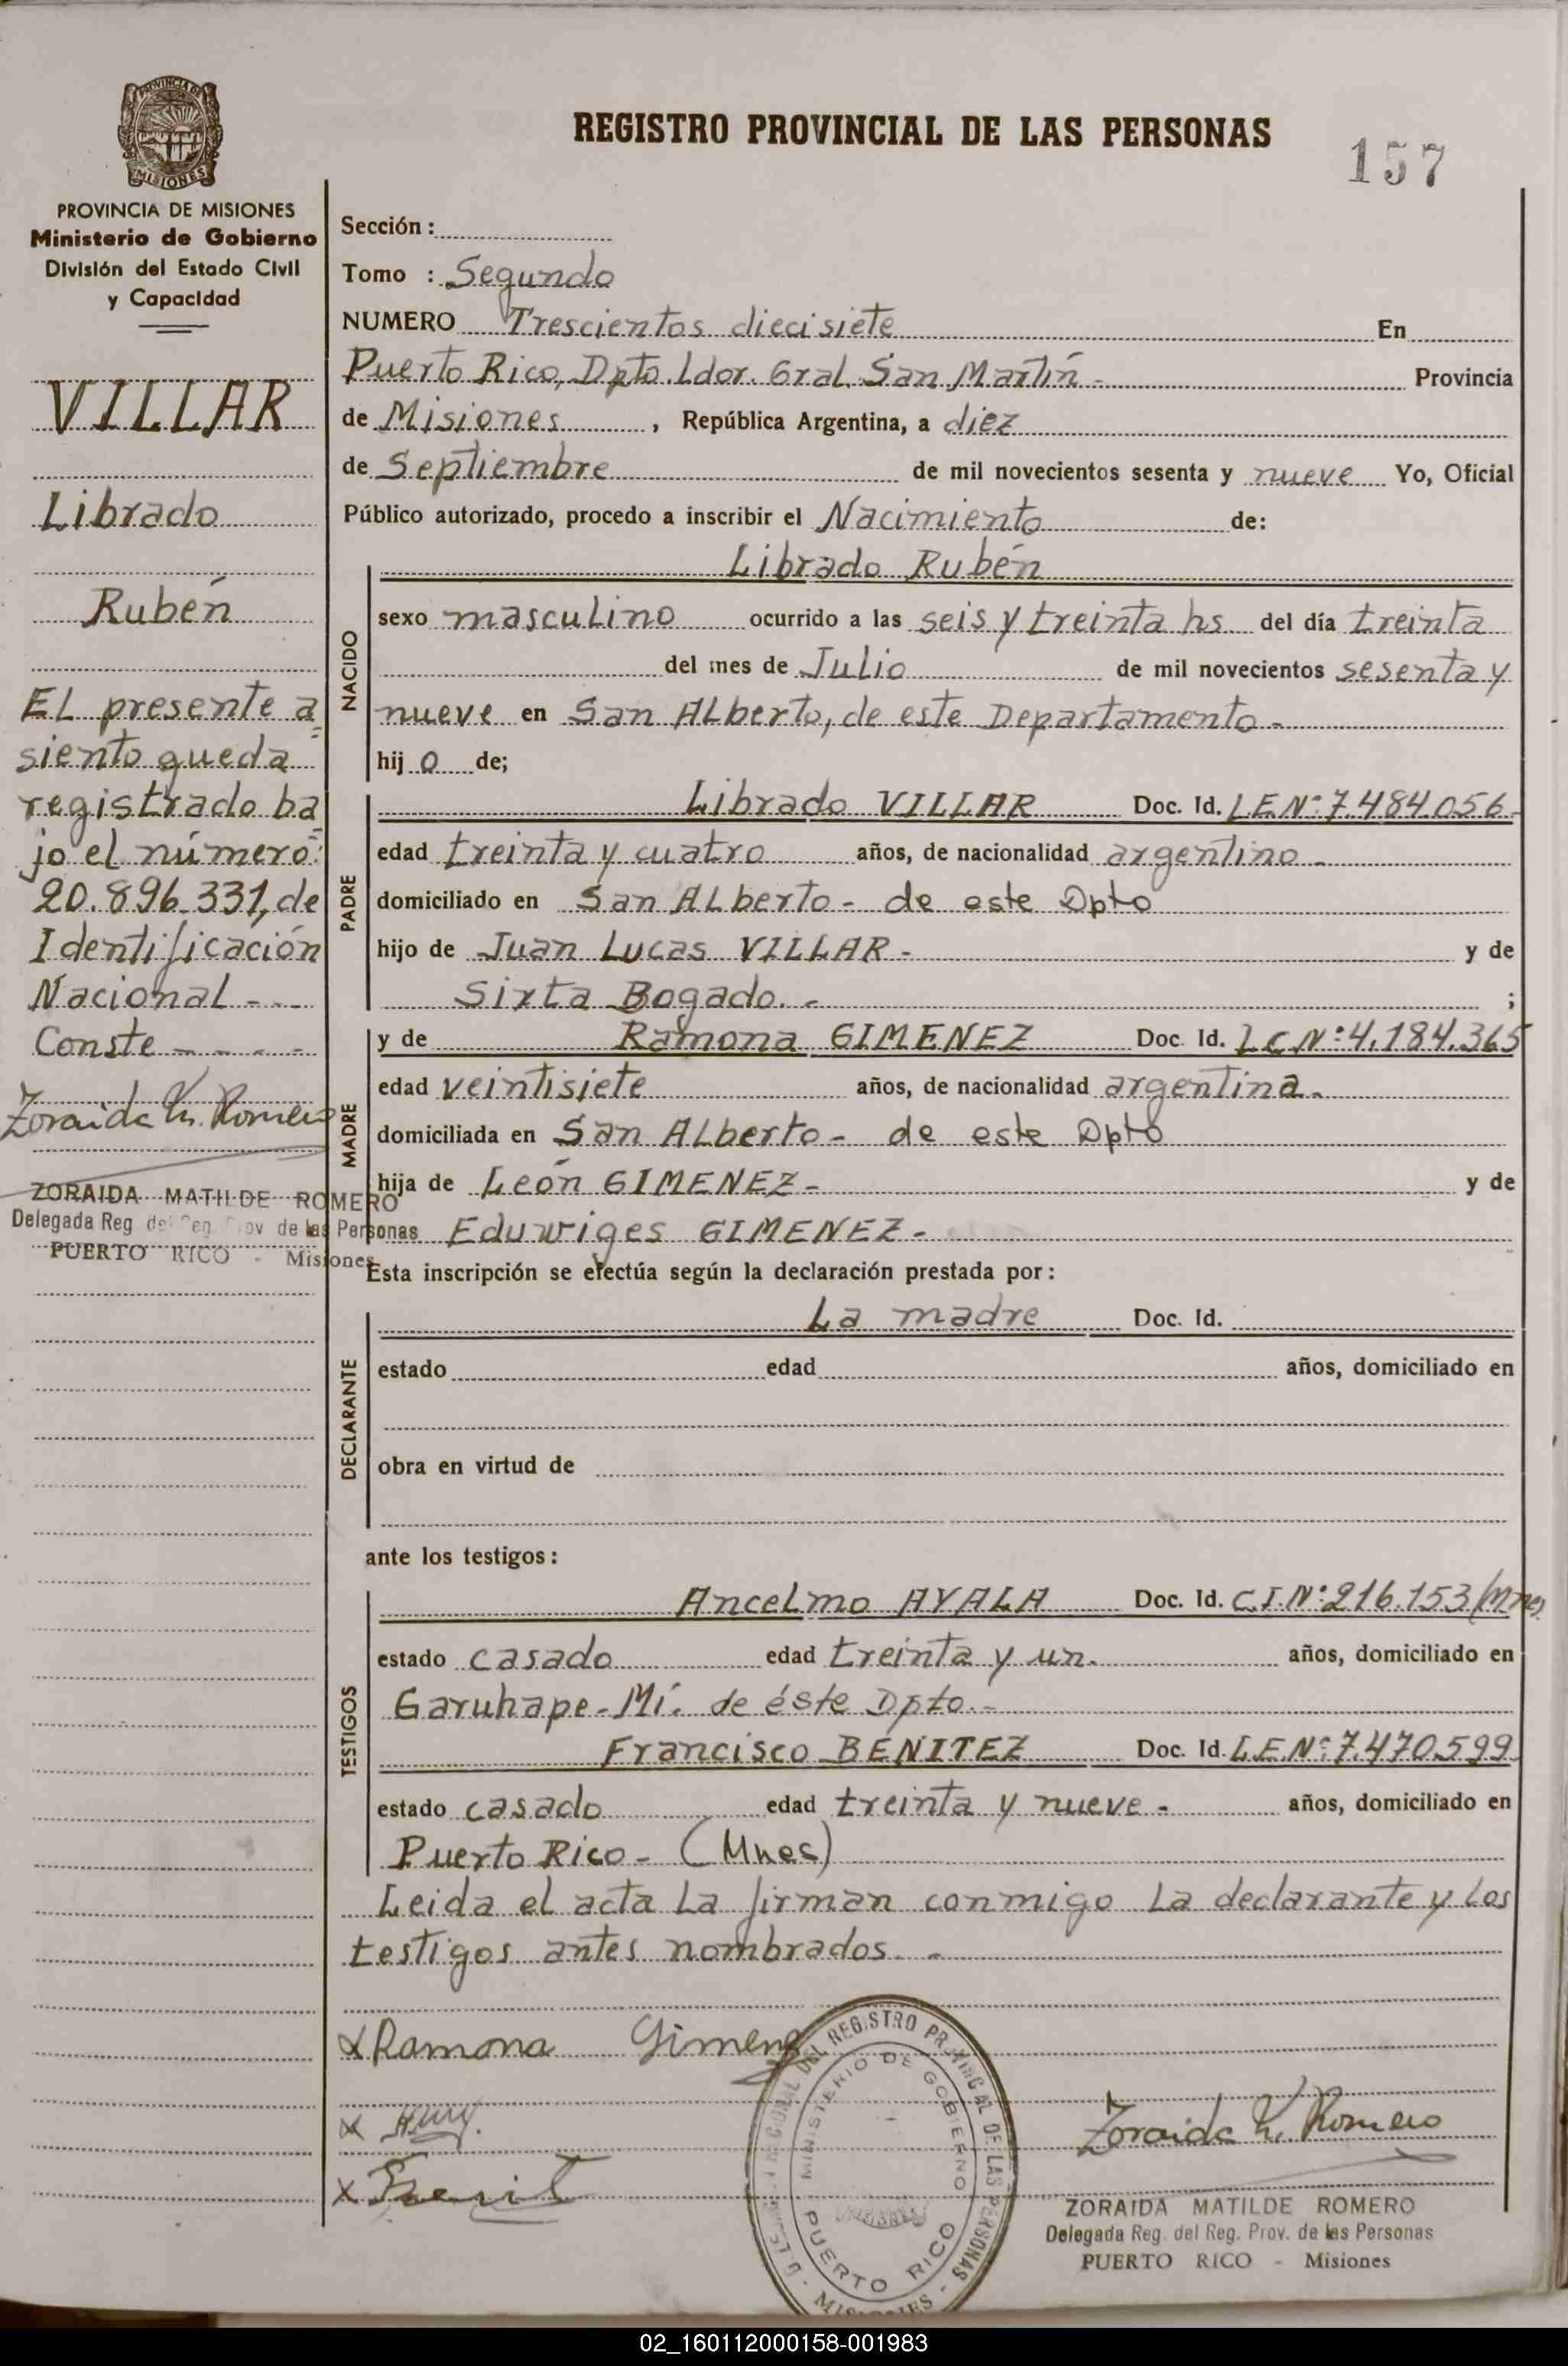 REGISTRO PROVINCIAL DE LAS PERSONAS
157
PROVINCIA DE MISIONES
MISIONES
PROVINCIA DE MISIONES
Ministerio de Gobierno
División del Estado Civil
y Capacidad
VILLAR
Librado
Rubén
EL presente a=
siento queda
registrado ba=
jo el número:
20.896.331, de
Identificación
Nacional - - -
Conste - - - -
Zoraida M. Romero
ZORAIDA MATILDE ROMERO
Delegada Reg. del Reg. Prov de las Personas
PUERTO RICO - Misiones
Sección:
Tomo : Segundo
NUMERO Trescientos diecisiete En
Puerto Rico, Dpto. Ldor. Gral. San Martín - Provincia
de Misiones , República Argentina, a diez
de Septiembre de mil novecientos sesenta y nueve Yo, Oficial
Público autorizado, procedo a inscribir el Nacimiento de:
NACIDO
Librado Rubén
sexo masculino ocurrido a las seis y treinta hs del día treinta
del mes de Julio de mil novecientos sesenta y
nueve en San ALberto, de este Departamento -
hij o de;
PADRE
Librado VILLAR Doc. Id. L.E.Nº: 7.484.056-
edad treinta y cuatro años, de nacionalidad argentino -
domiciliado en San ALberto - de este Dpto
hijo de Juan Lucas VILLAR - y de
Sixta Bogado. - ;
MADRE
y de Ramona GIMENEZ Doc. Id. L C Nº: 4.184.365
edad veintisiete años, de nacionalidad argentina.
domiciliada en San ALberto - de este Dpto
hija de León GIMENEZ - y de
Eduwiges GIMENEZ -
Esta inscripción se efectúa según la declaración prestada por:
DECLARANTE
La madre Doc. Id.
estado edad años, domiciliado en
obra en virtud de
ante los testigos:
TESTIGOS
Ancelmo AYALA Doc. Id. C.I.Nº: 216.153/Mnes)
estado casado edad treinta y un. años, domiciliado en
Garuhape - Mí. de éste Dpto. -
Francisco BENITEZ Doc. Id. L.E.Nº: 7.470.599
estado casado edad treinta y nueve - años, domiciliado en
Puerto Rico - (Mnes)
Leida el acta La firman conmigo La declarante y Los
testigos antes nombrados. -
x Ramona Gimenez
x
x
DEL REGISTRO PROVINCIAL DE LAS PERSONAS - MISIONES
MINISTERIO DE GOBIERNO
PUERTO RICO
Zoraida M. Romero
ZORAIDA MATILDE ROMERO
Delegada Reg. del Reg. Prov. de las Personas
PUERTO RICO - Misiones
02_160112000158-001983